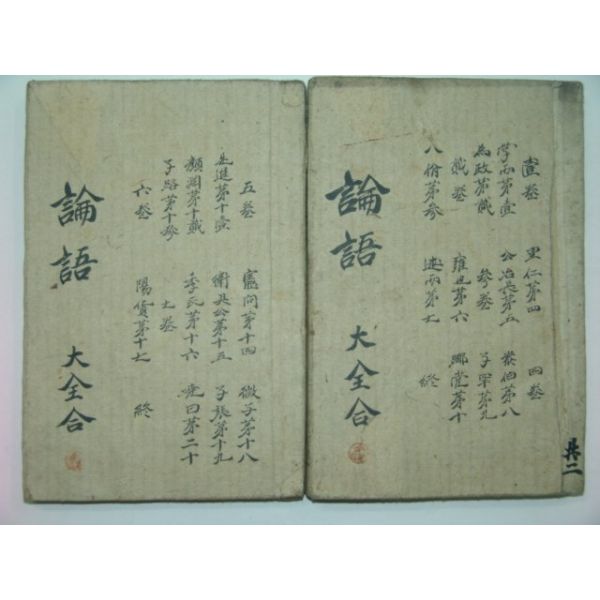 壹卷
學而第壹
為政第貳
貳卷
八佾第參
里仁第四
公冶長第五
參卷
雍也第六
述而第七
四卷
泰伯第八
子罕第九
鄕黨第十
終
論語
大全合
共二
五卷
先進第十壹
顏淵第十貳
子路第十參
六卷
憲問第十四
衛灵公第十五
季氏第十六
七卷
陽貨第十七
微子第十八
子張第十九
堯曰第二十
終
論語
大全合